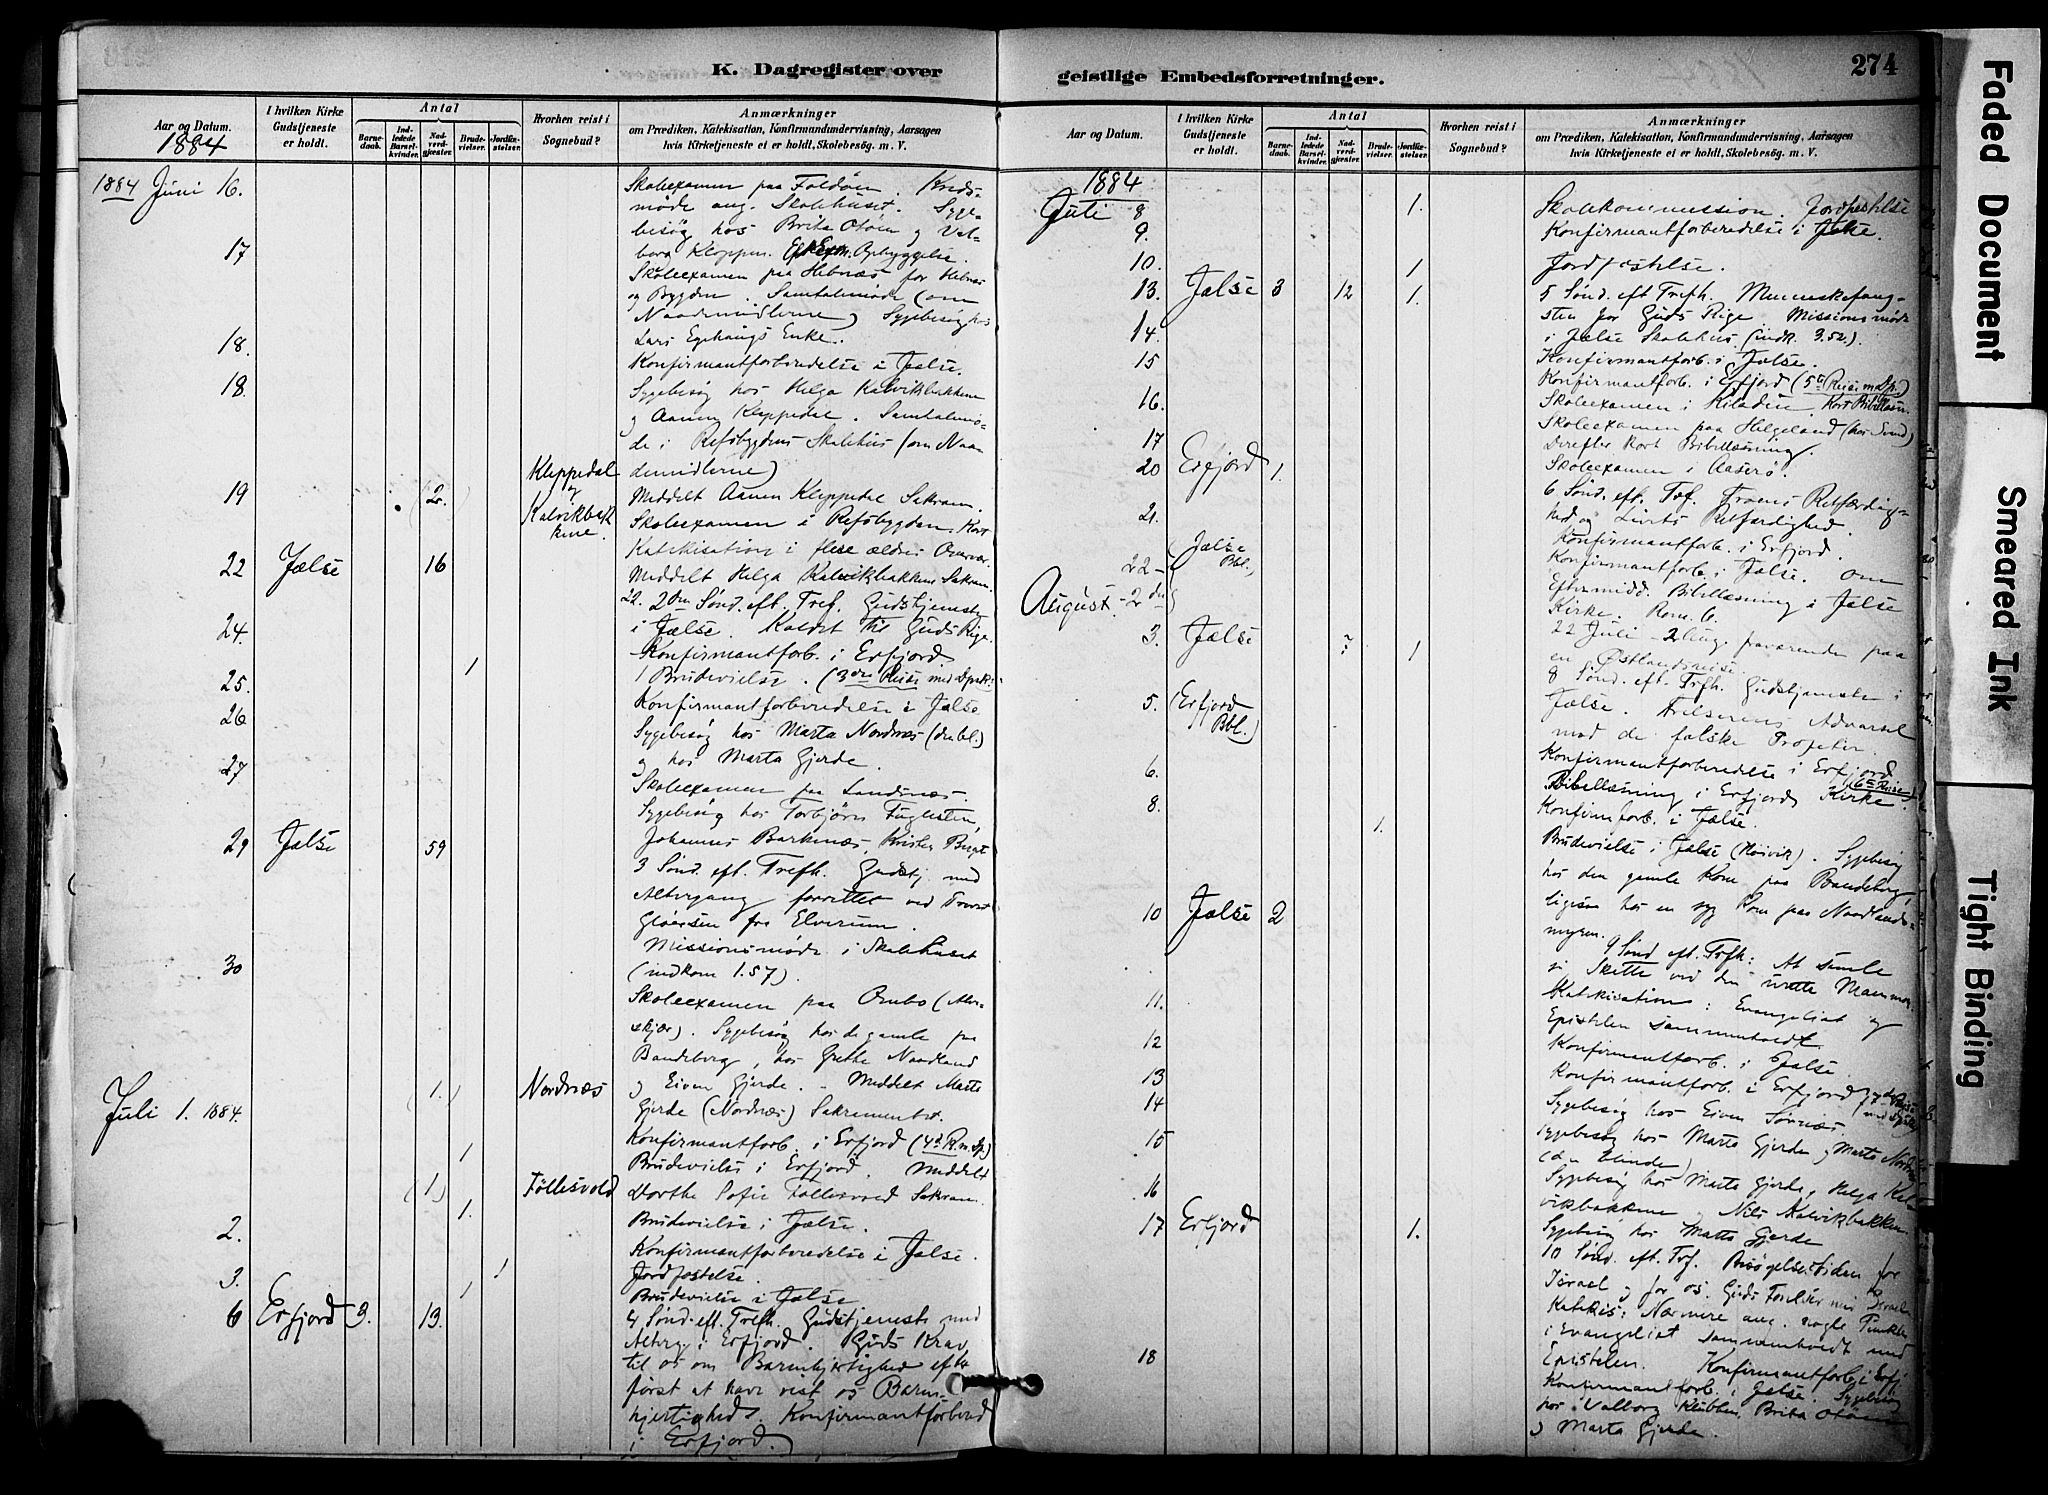 K. Dagregister over
Aar og Datum.
1884
I hvilken Kirke
Gudstjeneste
er holdt.
Antal
Barne-
daab.
Ind-
ledede
Barsel-
kvinder.
Nad-
verd-
gjester.
Brude-
vielser.
Jordfæ-
stelser.
Hvorhen reist i
Sognebud?
Anmærkninger
om Prædiken, Katekisation, Konfirmandundervisning, Aarsagen
hvis Kirketjeneste ei er holdt, Skolebesøg. m. V.
1884 Juni 16.
Skoleexamen paa Foldøen. Kreds-
møde ang. Skolehuset. Syge-
besøg hos Brita Otøen og Val-
borg Kloppen. Opbyggelse.
17
Skoleexamen paa Hebnæs for Hebnæs
og Bygden. Samtalemøde (om
Naademidlerne) Sygebesøg hos
Lars Egehaugs Enke.
18.
Konfirmantforberedelse i Jælse.
18.
Sygebesøg hos Helga Kalvikbakken
og Aanen Kleppedal. Samtalemø-
de i Refsbygdens Skolehus (om Naa-
demidlerne)
19 (2.) Kleppedal
og
Kalvikbak
kene.
Meddelt Aanen Kleppedal Sakram.
Skoleexamen i Refsbygden. Kort
Katekisation i flere ældres Overvær.
Meddelt Helga Kalvikbakken Sakram.
22 Jælse 16
22. 2den Sønd. eft. Tref. Gudstjeneste
i Jælse. Kaldet til Guds Rige.
24.
Konfirmantforb. i Erfjord.
1 Brudevielse. (3die Reise med Dpsk.)
25.
Konfirmantforberedelse i Jælse
26
Sygebesøg hos Marta Nordnæs (den bl.)
og hos Marta Gjerde.
27
Skoleexamen paa Landsnæs.
Sygebesøg hos Torbjørn Fuglesten,
Johannes Barkenæs, Krister Berget
29 Jælse 59
3 Sønd. eft. Trefh. Gudstj. med
Altergang forrettet ved Provst
Gløersen fra Elverum.
Missionsmøde i Skolehuset
(indkom 1.57).
30
Skoleexamen paa Ombo (Atve-
skjær). Sygebesøg hos de gamle paa
Bandeberg, hos Grethe Naadland
og Eiven Gjerde. - Meddelt Marta
Gjerde (Nordnæs) Sakramentet.
(1.) Nordnæs
Juli 1. 1884.
Konfirmantforb. i Erfjord (4de R. m. Dp.)
Brudevielse i Erfjord. Meddelt
Dorthe Sofie Follesvold Sakram.
1
(1) Follesvold
1.
Brudevielse i Jælse.
2.
Konfirmantforberedelse i Jælse.
Jordfæstelse.
3.
Brudevielse i Jælse
6 Erfjord 3. 13.
4 Sønd. eft. Trefh. Gudstjeneste med
Alterg. i Erfjord. Guds Krav
til os om Barmhjertighed efter
først at have vist os Barm-
hjertighed. Konfirmantforbered
i Erfjord.
geistlige Embedsforretninger.
274
Aar og Datum.
I hvilken Kirke
Gudstjeneste
er holdt.
Antal
Barne-
daab.
Ind-
ledede
Barsel-
kvinder.
Nad-
verd-
gjester.
Brude-
vielser.
Jordfæ-
stelser.
Hvorhen reist i
Sognebud?
Anmærkninger
om Prædiken, Katekisation, Konfirmandundervisning, Aarsagen
hvis Kirketjeneste ei er holdt, Skolebesøg. m. V.
1884
Juli 8 1.
Skolekommission. Jordfæstelse
9.
Konfirmantforberedelse i Jælse.
10. 1
Jordfæstelse.
13. Jælse 3 12 1.
5 Sønd. eft Trefh. Menneskefang-
sten for Guds Rige. Missionsmøde
i Jælse Skolehus (indk. 3.52).
14.
Konfirmantforb. i Jælse.
15
Konfirmantforb. i Erfjord (5te Reise m Dp.)
16.
Skoleexamen i Kiladen. Kort Bibellæsn.
17
Skoleexamen paa Helgeland (hos Svend)
Derefter kort Bibellæsning.
Skoleexamen i Aaserø.
20 Erfjord 1.
6 Sønd. eft. Tref. Troens Retfærdig-
hed og Livets Retfærdighed.
21.
Konfirmantforb. i Erfjord.
Konfirmantforb. i Jælse. Om
Eftermidd. Bibellæsning i Jælse
Kirke. Rom. 6.
(Jælse
Bbl.)
22 -
August - 2den
22 Juli - 2 Aug. fraværende paa
en Østlandsreise
3. Jælse ? 1
8 Sønd. eft. Trefh. Gudstjeneste i
Jælse. Frelserens Advarsel
mod de falske Profeter.
5. (Erfjord
Bbl.)
Konfirmantforberedelse i Erfjord
(6te Reise)
Bibellæsning i Erfjords Kirke
6.
Konfirmforb. i Jælse.
8. 1.
Brudevielse i Jælse (Høivik). Sygebesøg
hos den gamle Kone paa Bandeberg,
ligesaa hos en syg Kone paa Naadlands-
myren.
10 Jælse 2
9 Sønd eft. Trfh: At samle
si Skatte ved den urette Mammon.
Katekisation: Evangeliet og
Epistelen sammenholdt.
11.
Konfirmantforb. i Jælse.
12
Konfirmantforb. i Erfjord (7de Reise
med Dpsk.)
13
Sygebesøg hos Eiven Tørnæs
14
Sygebesøg hos Marta Gjerde og Marta Nordnæs
(den blinde)
15
Sygebesøg hos Marta Gjerde, Helga Kal-
vikbakkene og Nils Kalvikbakken
16
Sygebesøg hos Marta Gjerde
17 Erfjord 1.
10 Sønd. eft. Tref. Besøgelsestiden for
Israel og for os. Guds Følelser mod Israel
Katekis: Nærmere ang. nogle Punkter
i Evangeliet sammenholdt med
Epistelen. Konfirmantforb. i Erfj.
18
Konfirmantforb. i Jælse. Sygebesøg
hos Valborg Klubben, Brita Otøen
og Marta Gjerde.
Faded Document
Smeared Ink
Tight Binding